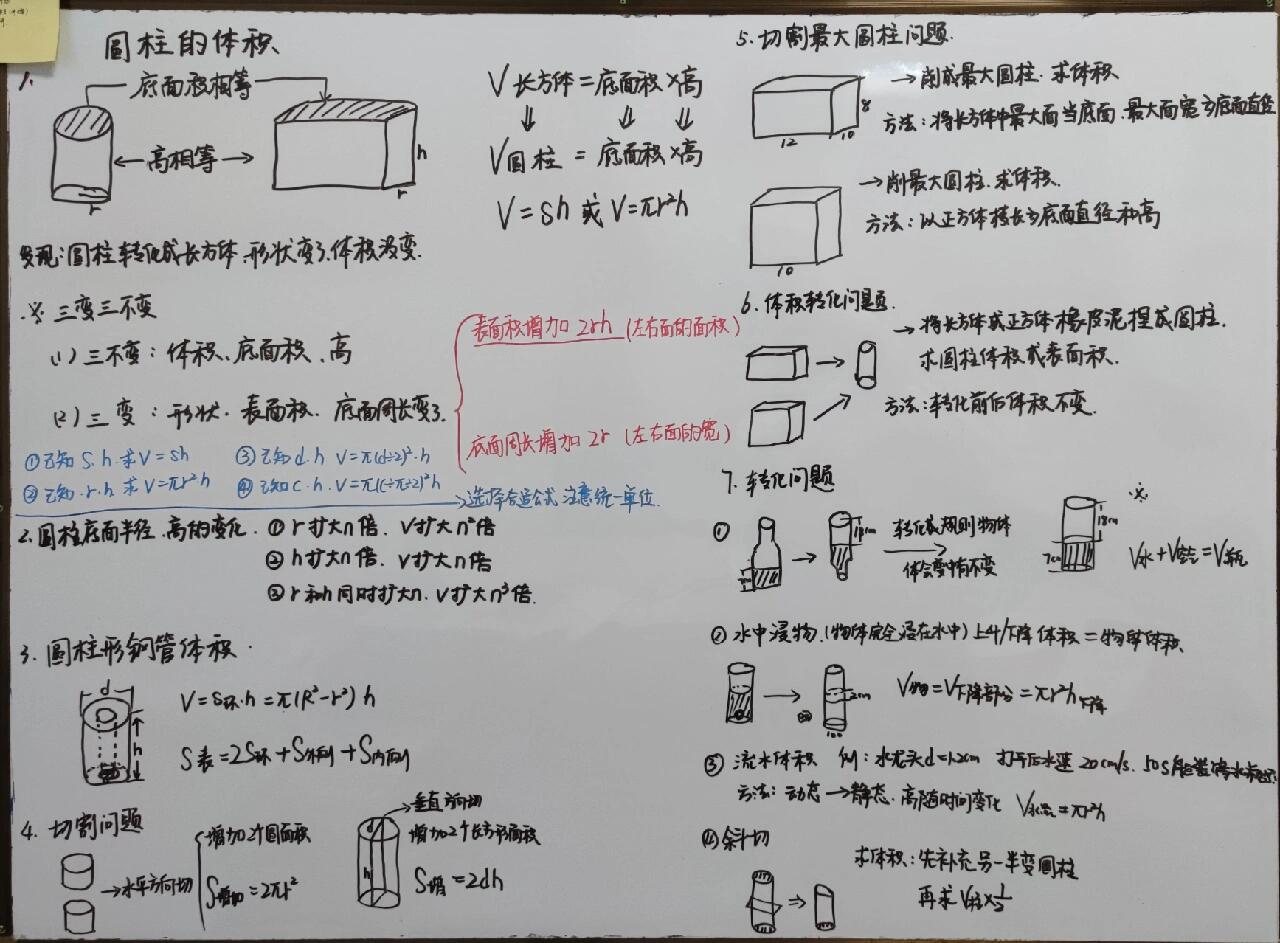 圆柱的体积
1.
底面积相等
高相等
h
r
r
V长方体=底面积×高
V圆柱=底面积×高
V=Sh或V=πr²h
发现:圆柱转化成长方体,形状变了.体积没变.
※三变三不变
(1)三不变:体积、底面积、高
(2)三变:形状.表面积.底面周长变了.
表面积增加2rh(左右面的面积)
底面周长增加2r(左右面的宽)
①已知S.h.求V=sh
③已知d.h V=π(d÷2)².h
②已知.r.h求V=πr²h
④已知c.h.V=π(c÷π÷2)²h
→选择合适公式.注意统一单位.
2.圆柱底面半径.高的变化.①r扩大n倍.V扩大n²倍
②h扩大n倍.V扩大n倍
③r和h同时扩大n.V扩大n³倍.
3.圆柱形钢管体积.
d
h
V=S环.h=π(R²-r²)h
S表=2S环+S外侧+S内侧
4.切割问题
→水平方向切
增加2个圆面积
S增加=2πr²
→垂直方向切
d
h
增加2个长方形面积
S增=2dh
5.切割最大圆柱问题.
12
10
8
→削成最大圆柱.求体积
方法:将长方体中最大面当底面.最大面宽为底面直径
10
→削最大圆柱.求体积.
方法:以正方体棱长为底面直径和高
6.体积转化问题.
→将长方体或正方体橡皮泥捏成圆柱.
求圆柱体积或表面积.
方法:转化前后体积不变.
7.转化问题
①
18cm
转化成规则物体
体会变中有不变
※
18cm
7cm
V水+V空气=V瓶
②水中浸物.(物体完全浸在水中)上升/下降体积=物体体积.
2cm
V物=V下降部分=πr²h下降
③流水体积 例:水龙头d=1.2cm 打开后水速20cm/s.50s
方法:动态→静态.高随时间变化 =πr²h
④斜切
求体积:先补充另一半变圆柱
再求V柱×1/2